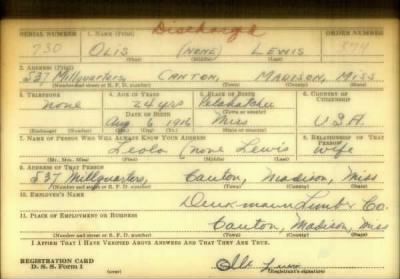 Discharge
SERIAL NUMBER 1. NAME (Print) ORDER NUMBER
730 OLIS (NONE) LEWIS 379
(First) (Middle) (Last)
2. ADDRESS (Print)
537 Millquarters, CANTON, MADISON, MISS
(Number and street or R. F. D. number) (Town) (County) (State)
3. TELEPHONE 4. AGE IN YEARS 5. PLACE OF BIRTH 6. COUNTRY OF CITIZENSHIP
none 24 yrs Pelahatchee
DATE OF BIRTH (Town or county)
Aug 6, 1916 Miss U.S.A
(Exchange) (Number) (Mo.) (Day) (Yr.) (State or country)
7. NAME OF PERSON WHO WILL ALWAYS KNOW YOUR ADDRESS 8. RELATIONSHIP OF THAT PERSON
Leola (none Lewis wife
(Mr., Mrs., Miss) (First) (Middle) (Last)
9. ADDRESS OF THAT PERSON
537 Millquarters, Canton, Madison, Miss
(Number and street or R. F. D. number) (Town) (County) (State)
10. EMPLOYER'S NAME
Denkmann Lumber Co.
11. PLACE OF EMPLOYMENT OR BUSINESS
Canton, Madison, Miss
(Number and street or R. F. D. number) (Town) (County) (State)
I AFFIRM THAT I HAVE VERIFIED ABOVE ANSWERS AND THAT THEY ARE TRUE.
REGISTRATION CARD
D. S. S. Form 1 (Registrant's signature)